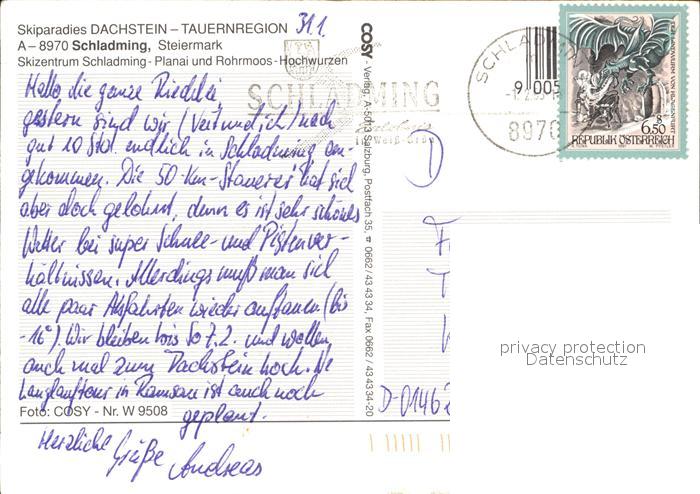 Skiparadies DACHSTEIN – TAUERNREGION 31.1.
A – 8970 Schladming, Steiermark
Skizentrum Schladming - Planai und Rohrmoos - Hochwurzen
Hallo die ganze
gestern sind wir (Veit und ich) nach
gut 10 Std. endlich in Schladming an-
gekommen. Die 50 Km-Stauerei hat sich
aber doch gelohnt, denn es ist sehr schönes
Wetter bei super Schnee- und Pistenver-
hältnissen. Allerdings muß man sich
alle paar Abfahrten wieder auftauen (bis
-16°). Wir bleiben bis So 7.2. und wollen
auch mal zum Dachstein hoch. 'Ne
Langlauftour in Ramsau ist auch noch
geplant.
Foto: COSY - Nr. W 9508
Herzliche
Grüße Andreas
COSY - Verlag, A-5013 Salzburg, Postfach 35, ☎ 0662/43 43 34, Fax 0662/43 43 34-20
SCHLADMING
SCHLADMING
8970
9 005
DER LINDWURM VON KLAGENFURT
S
6,50
REPUBLIK ÖSTERREICH
D
D-0146
privacy protection
Datenschutz